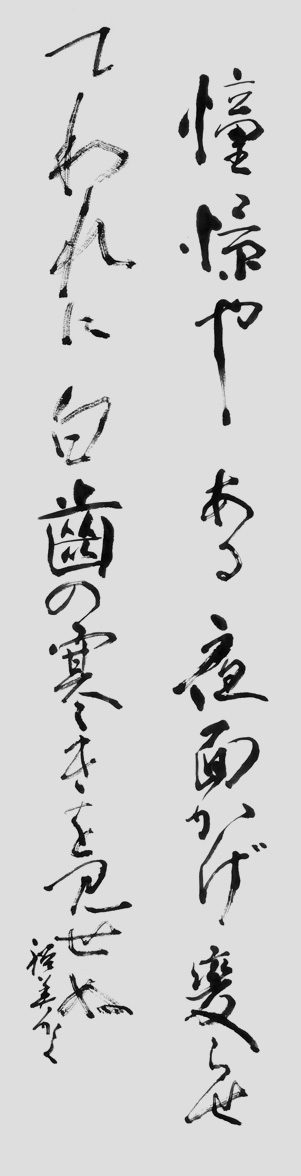 憧憬やある夜面かげ変らせ
てわれに白齒の寒きを見せぬ
裕美かく